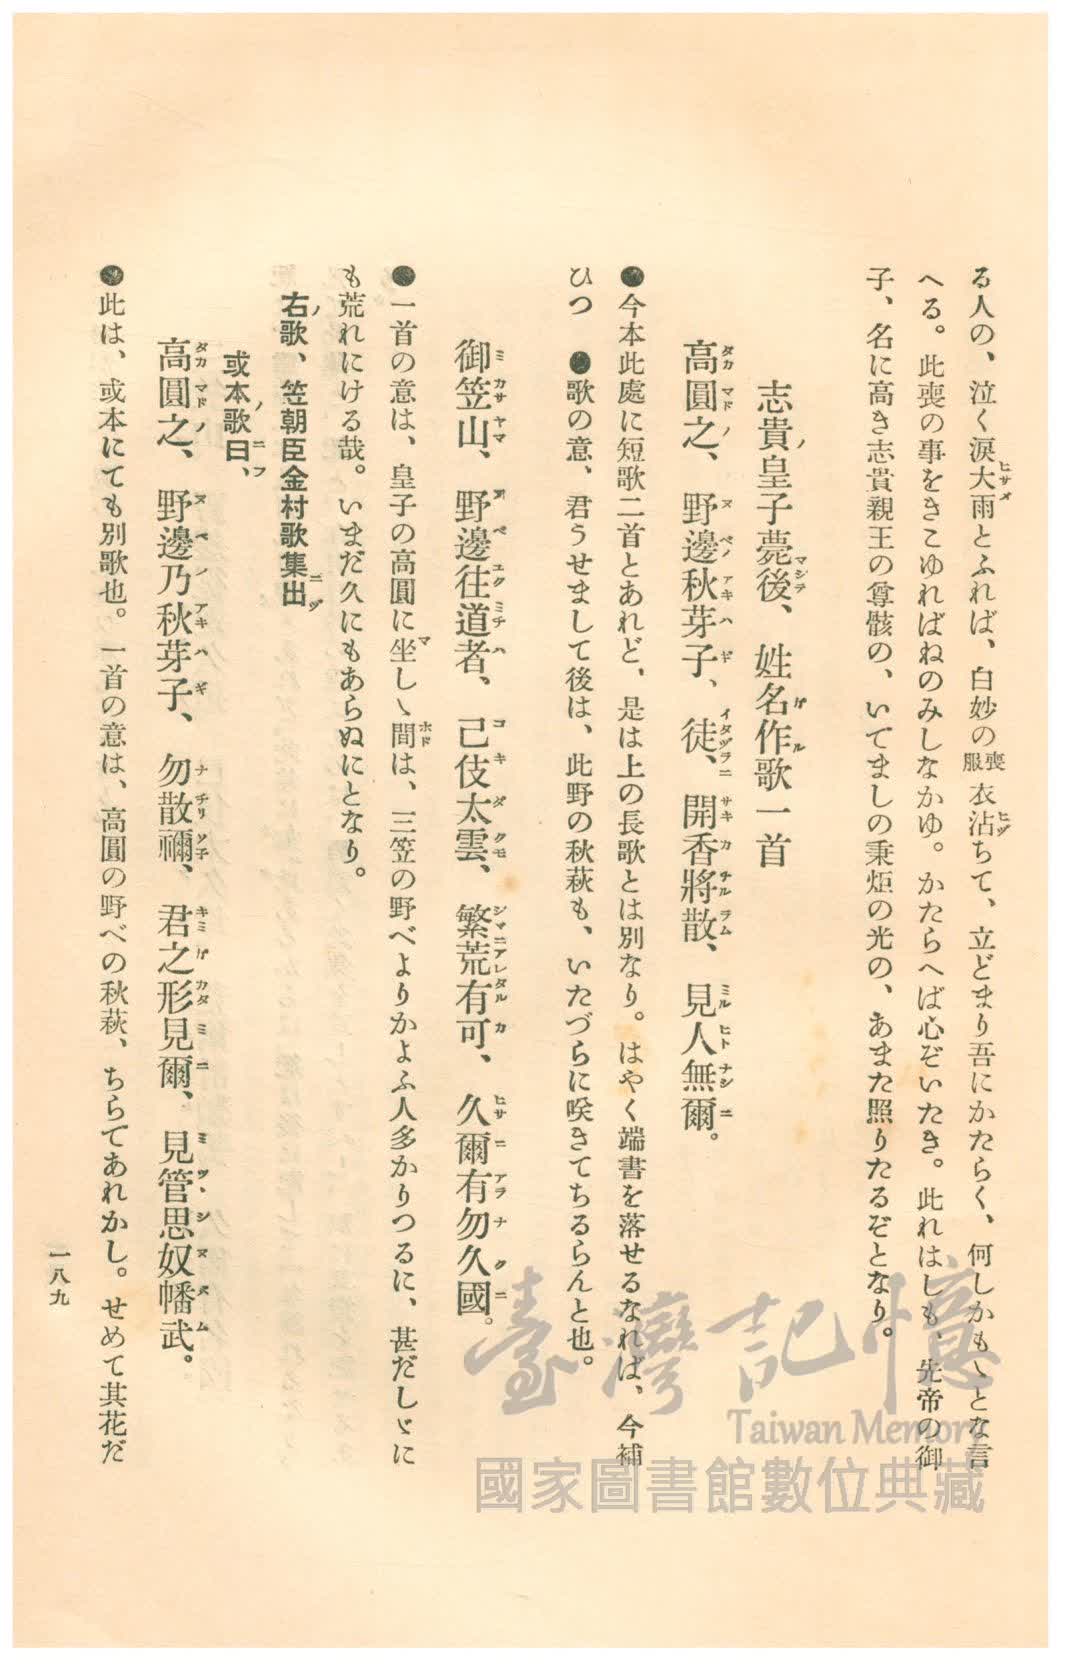 る人の、泣く涙大雨とふれば、白妙の喪服衣沾ちて、立どまり吾にかたらく、何しかもゝとな言
へる。此喪の事をきこゆればねのみしなかゆ。かたらへば心ぞいたき。此れはしも、先帝の御
子、名に高き志貴親王の尊骸の、いてましの秉炬の光の、あまた照りたるぞとなり。
志貴皇子薨後、姓名作歌一首
高圓之、野邊秋芽子、徒、開香將散、見人無爾。
●今本此處に短歌二首とあれど、是は上の長歌とは別なり。はやく端書を落せるなれば、今補
ひつ　●歌の意、君うせまして後は、此野の秋萩も、いたづらに咲きてちるらんと也。
御笠山、野邊往道者、己伎太雲、繁荒有可、久爾有勿久國。
●一首の意は、皇子の高圓に坐しゝ間は、三笠の野べよりかよふ人多かりつるに、甚だしゞに
も荒れにける哉。いまだ久にもあらぬにとなり。
右歌、笠朝臣金村歌集出
或本歌曰、
高圓之、野邊乃秋芽子、勿散禰、君之形見爾、見管思奴幡武。
●此は、或本にても別歌也。一首の意は、高圓の野べの秋萩、ちらてあれかし。せめて其花だ
一八九
臺灣記憶
Taiwan Memory
國家圖書館數位典藏